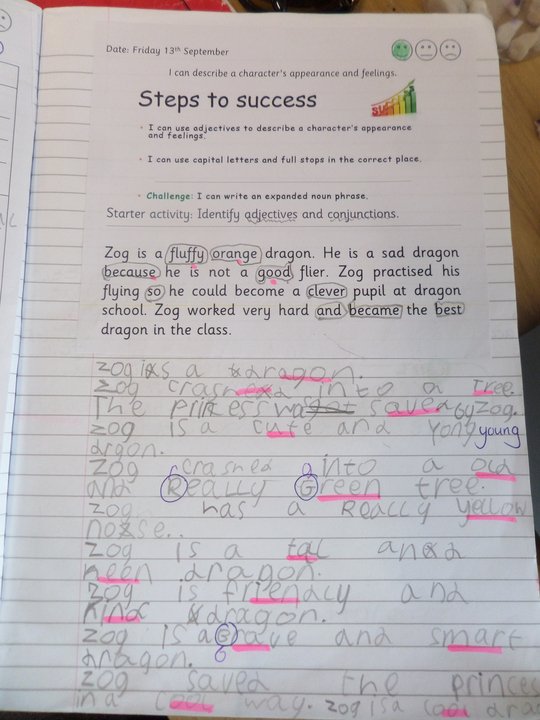 Date: Friday 13th September
I can describe a character's appearance and feelings.
Steps to success
SUCCESS
• I can use adjectives to describe a character's appearance
and feelings.
• I can use capital letters and full stops in the correct place.
• Challenge: I can write an expanded noun phrase.
Starter activity: Identify adjectives and conjunctions.
Zog is a fluffy orange dragon. He is a sad dragon
because he is not a good flier. Zog practised his
flying so he could become a clever pupil at dragon
school. Zog worked very hard and became the best
dragon in the class.
zog is a dragon.
Zog crashed into a tree.
The princess was saved by Zog.
Zog is a cute and yong young
drgon.
Zog crashed into a old
and Really Green tree.
Zog has a Really yellow
nose.
Zog is a tal and
neen dragon.
Zog is friendly and
kind dragon.
Zog is a Brave and smart
b
dragon.
Zog saved the princes
in a cool way. zog is a cool dra